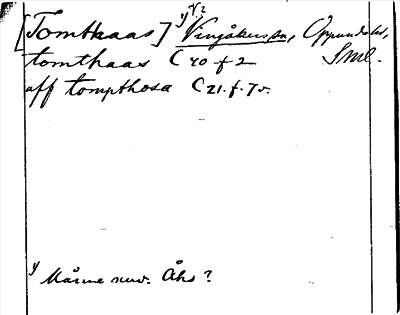 [Tomthaas] Vingåkers sn, Oppunda hd,
tomthaas C 40 f 2 Sml.
aff tompthosa C 21. f. 7 v.
Månne nuv. Åhs?